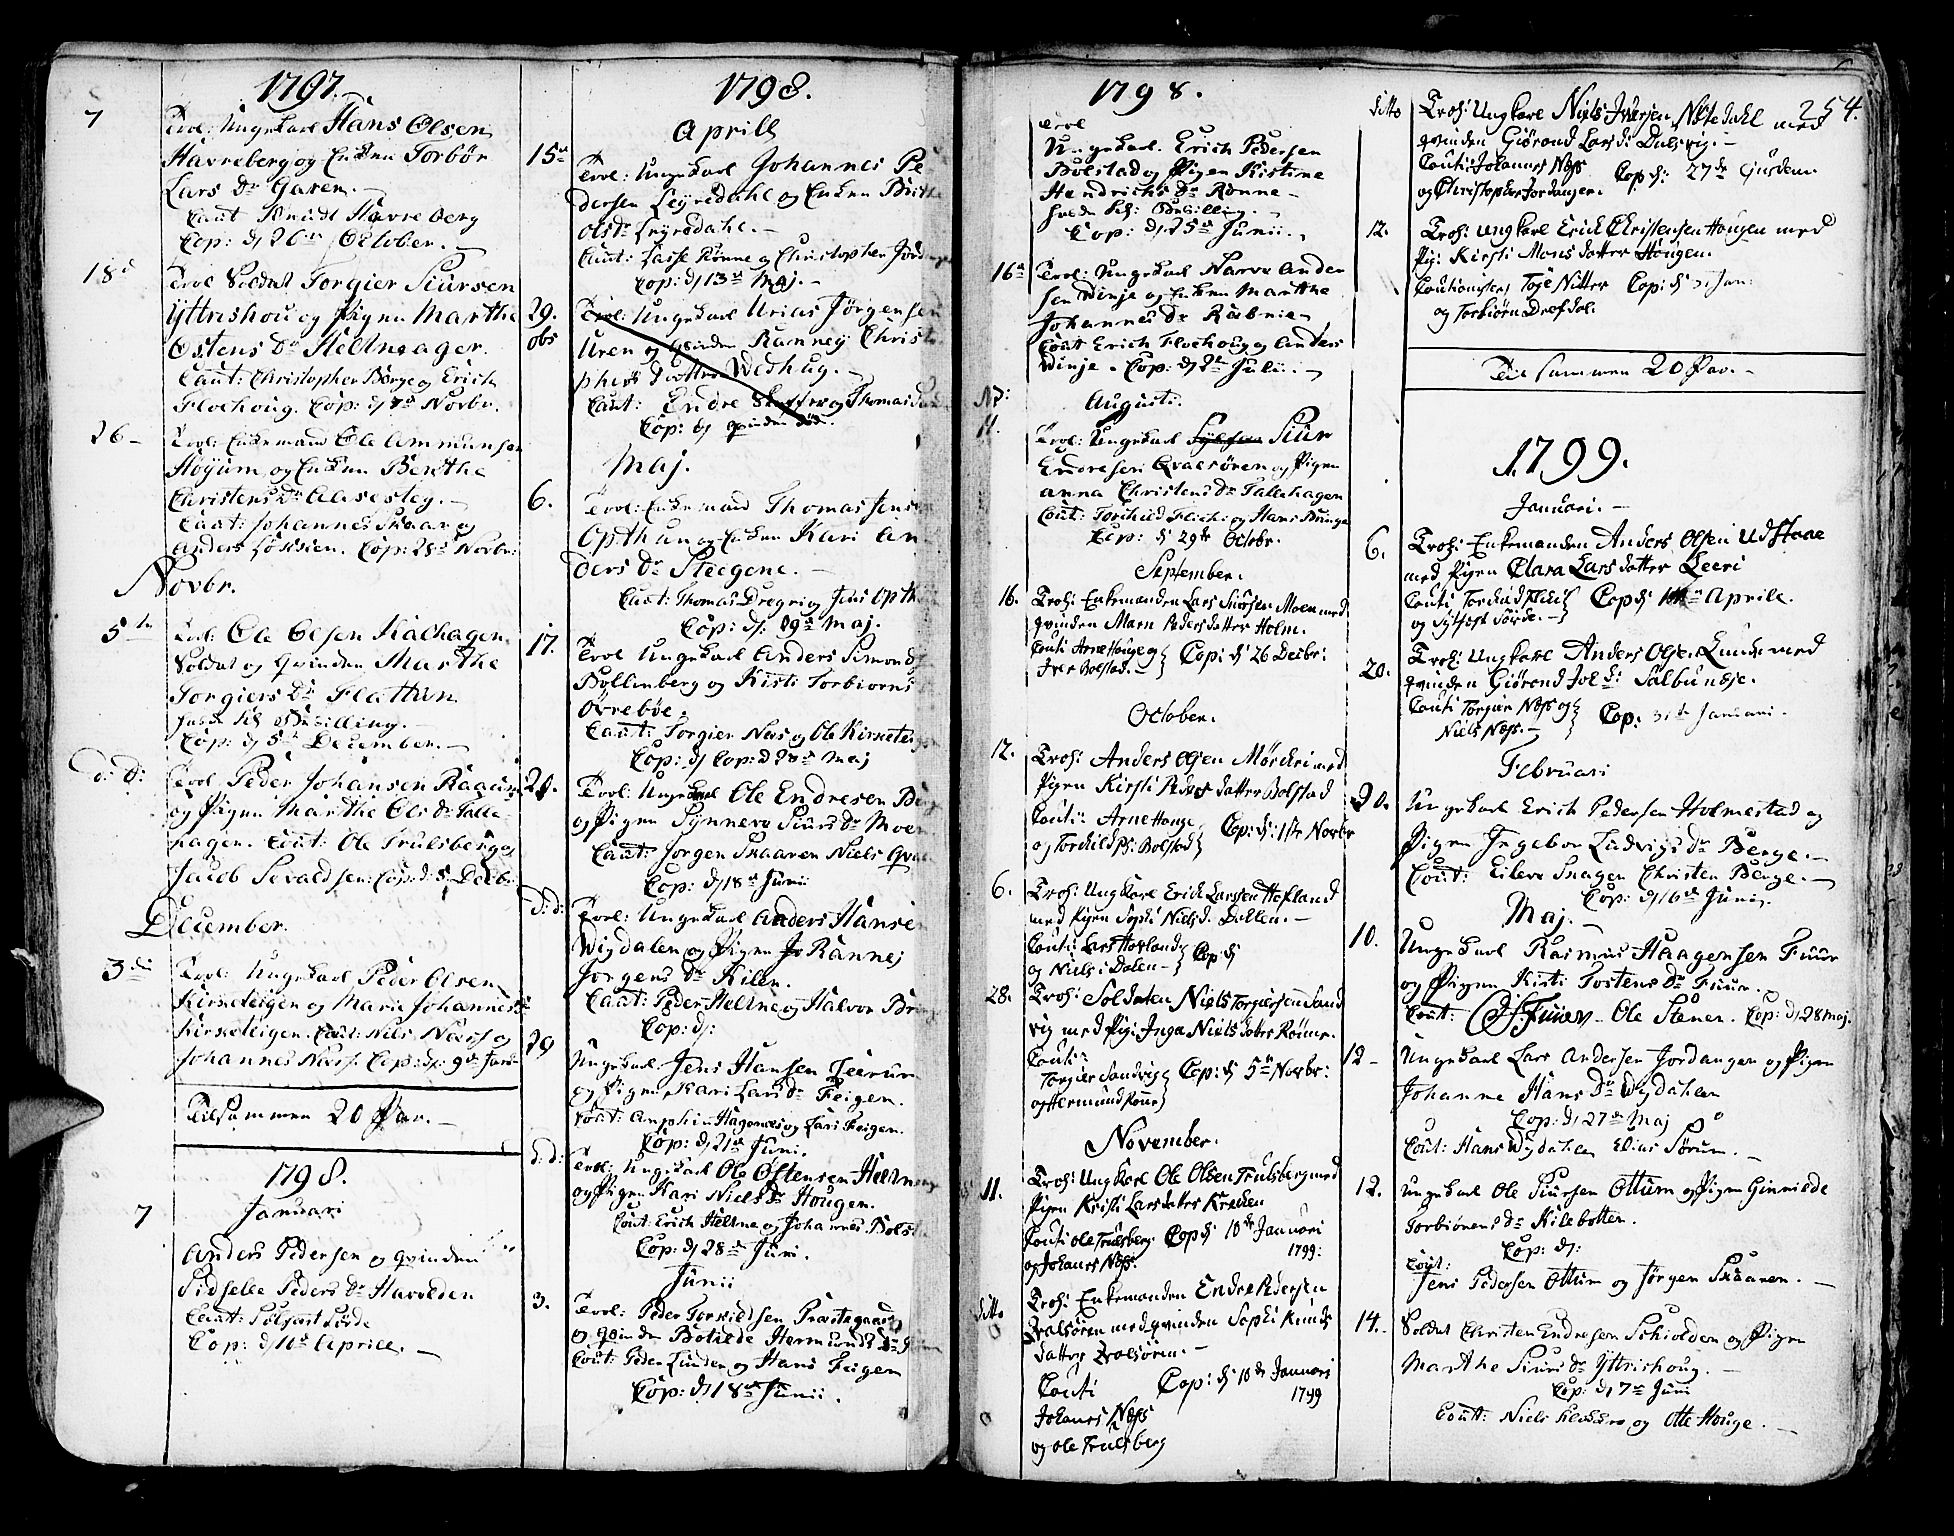 1797.
7 Trol: Ungekarl Hans Olsen
Havreberg og Enken Torbør
Lars Dr Garen.
Caut Knudt Havreberg
Cop: d, 26de October.
18d Trol Soldat Torgier Siursen
Yttrishou og Pigen Marthe
Ostens Dr Heltneager.
Caut: Christopher Børge og Erich
Flochoug. Cop: d, 7de Novbr.
26 Trol: Enkemand Ole Ammunsen
Høyum og Enken Berthe
Christens Dr
Caut: Johannes Skaar og
Anders Cop: 28de Novbr:
Novbr.
5te Trol: Ole Olsen Kalhagen
Soldat og Qvinden Marthe
Torgiers Dr Flattun
Cop: d, 5te December.
d: d: Trol Peder Johansen Kaarn
og Pigen Marthe Ols Dr Talle-
hagen. Caut: Ole Trulsberg og
Jacob Sevaldsen. Cop: d: 5 Decbr
December.
3die Trol: Ungekarl Peder Olsen
Kirketeigen og Marie Johannes Dr
Kirketeigen. Caut: Nils Næss og
Johannes Næss. Cop: d: 9de Janr
Tilsammen 20 Par.
1798.
Januari
7 Anders Pedersen og Qvinden
Sidselle Peders Dr Havelden
Caut: Sølfest Sørde
Cop: d, 10de Aprill.
1798.
Aprill
15de Trol: Ungekarl Johannes Pe
dersen Leyredahl og Enken Britte
Olsdr Leyredahl.
Caut: Lasse Rønne og Christopher Jordan
Cop: d, 13de Maj.
29. Trol: Ungekarl Urias Jørgensen
obs Uren og Qvinden Ranney Christo
phers Dotter Wedhug.
Caut: Endre og Thomas
Cop: d, Qvinden død.
Maj.
6. Trol: Enkemand Thomas Jensen
Opthun og Enken Kari An
ders Dr Steegene.
Caut: Thomas Dregni og Jens Opthun
Cop: d: 29de Maj.
17. Trol Ungekarl Anders Simonds
Bollinberg og Kisti Torbiorns
Øvrebøe.
Caut: Torgier Næs og Ole Kirketeigen
Cop: d, Cop: d 28de Maj
20. Trol: Ungekarl Ole Endresen
og Pigen Synneva Siurs Dr Moen
Caut: Jørgen Skaaren Niels
Cop: d, 18de Junii
d: d: Trol: Ungekarl Anders Hansen
Wigdalen og Pigen Jo Rannej
Jørgens Dr Kilen.
Caut: Peder Heltne og Halvor
Cop: d:
29 Ungekarl Jens Hansen Leerum
og Pigen Kari Lars Dr Feigen.
Caut: Amphin Hagenæs og Lars Feigen.
Cop: d, 21de Juni.
d: d: Trol: Ungekarl Ole Østensen Heltne
og Pigen Kari Niels Dr Hougen.
Caut: Erich Heltne og Johannes Bolstad
Cop: d, 28de Juni.
Junii
3. Trol: Peder Torkildsen Præstegaard
og Qvinden Botilde Hermunds Dr
Caut: Peder Linden og Hans Feigen
Cop: d, 18de Junii.
1798.
Trol
Ungekarl. Erich Pedersen
Bolstad og Pigen Kistine
Hendrichs Dr Rønne
Cop: d, 25de Junii.
16de Trol: Ungekarl Narve Ander
sen Dinje og Enken Marthe
Johannes Dr Rubnie
Caut Erich Flochoug og Anders
Dinje. Cop: d, 2de Julii.
Augusti.
11. Trol: Ungekarl Siur
Endresen Qvalsøren og Pigen
Anna Christens Dr Tallehagen
Caut: Torchild Flich: og Hans Bunga
Cop: d 29de Octobr.
September.
16. Troh: Enkemanden Lars Siursen Moen med
qvinden Marn Pedersdatter Holm.
Cauti Arne Houge og Cop: d: 26 Decbr:
Iver Bolstad.
October.
12. Troh: Anders Olsen Mørkri med
Pigen Kirsti Pedersdatter Bolstad
Cauti: Arne Houge Cop: d: 1ste Novbr
og Torchild Ps: Bolstad
6. Troh: Ungkarl Erick Larssen Hofland
med Pigen Sophi Niels d. Dallen.
Cauti Lars Hovland Cop: d
og Niels i Dalen
28. Troh: Soldaten Niels Torgiersen Sand
vig med Pig: Inga Nielsdotter Rønne.
Cauti:
Torgier Sandvig Cop: d 5te Novbr:
og Hermund Rønne
November.
11. Troh: Ungkarl Ole Olsen Trulsberg med
Pigen Kristi Larsdatter Kreken
Cauti Ole Trulsberg. Cop d 10de Januari
og Johanes Næss. 1799:
ditto Troh: Enkemanden Endre Pedersen
Qvalsøren med qvinden Sophi Knuds
datter Qvalsøren.
Cauti Cop: d: 10de Januari
Johanes Næss 1799
og Ole Trulsberg
254.
ditto Troh: Ungkarl Niels Iversen Nøtedahl med
qvinden Giørond Larsd: Dulsvig.
Cauti: Johannes Næss Cop: d: 27de
og Christopher Jordanger.
12. Troh: Ungkarl Erick Christensen Hougen med
Pig: Kirsti Monsdatter Hougen.
Cautionister Toje Nitter Cop: d: Jan:
og Torbiørn Drefdol.
Tilsammen 20 Par.
1799.
Januari.
6. Troh: Enkemanden Anders Olsen Udstaae
med Pigen Clara Larsdatter Leeri
Cauti Torchild Cop d: Aprile.
og Sylfest Sørde.
20. Troh: Ungkarl Anders Olsen Lunde med
qvinden Giørond Jol d: Salbundje.
Cauti Torgier Næss og Cop: 31te Januari.
Niels Næss.
Februari
20. Ungekarl Erich Pedersen Holmestad og
Pigen Ingebor Ludvigs Dr Berge.
Caut: Eileve Snagen Christen Berge.
Cop: d, 16de Juni.
Maj.
10. Ungekarl Rasmus Haagensen Fuur
og Pigen Kisti Tostens Dr Fuur.
Caut: Ole Stenen. Cop: d, 28 Maj.
12 Ungekarl Lars Andersen Jordanger og Pigen
Johanne Hans Dr Wigdahlen
Cop: d, 27de Maj
Caut: Hans Wigdahlen Elias Sørum.
12. Ungekarl Ole Siursen Ottum og Pigen Ginnilde
Torbiørens Dr Hilebotten.
Cop: d:
Caut:
Jens Pedersen Ottum og Jørgen Skaaren.
14. Soldat Christen Endresen Schiolden og Pigen
Marthe Siurs Dr Yttrishoug.
Cop: d, 7de Juni
Caut: Niels og Otte Houge.